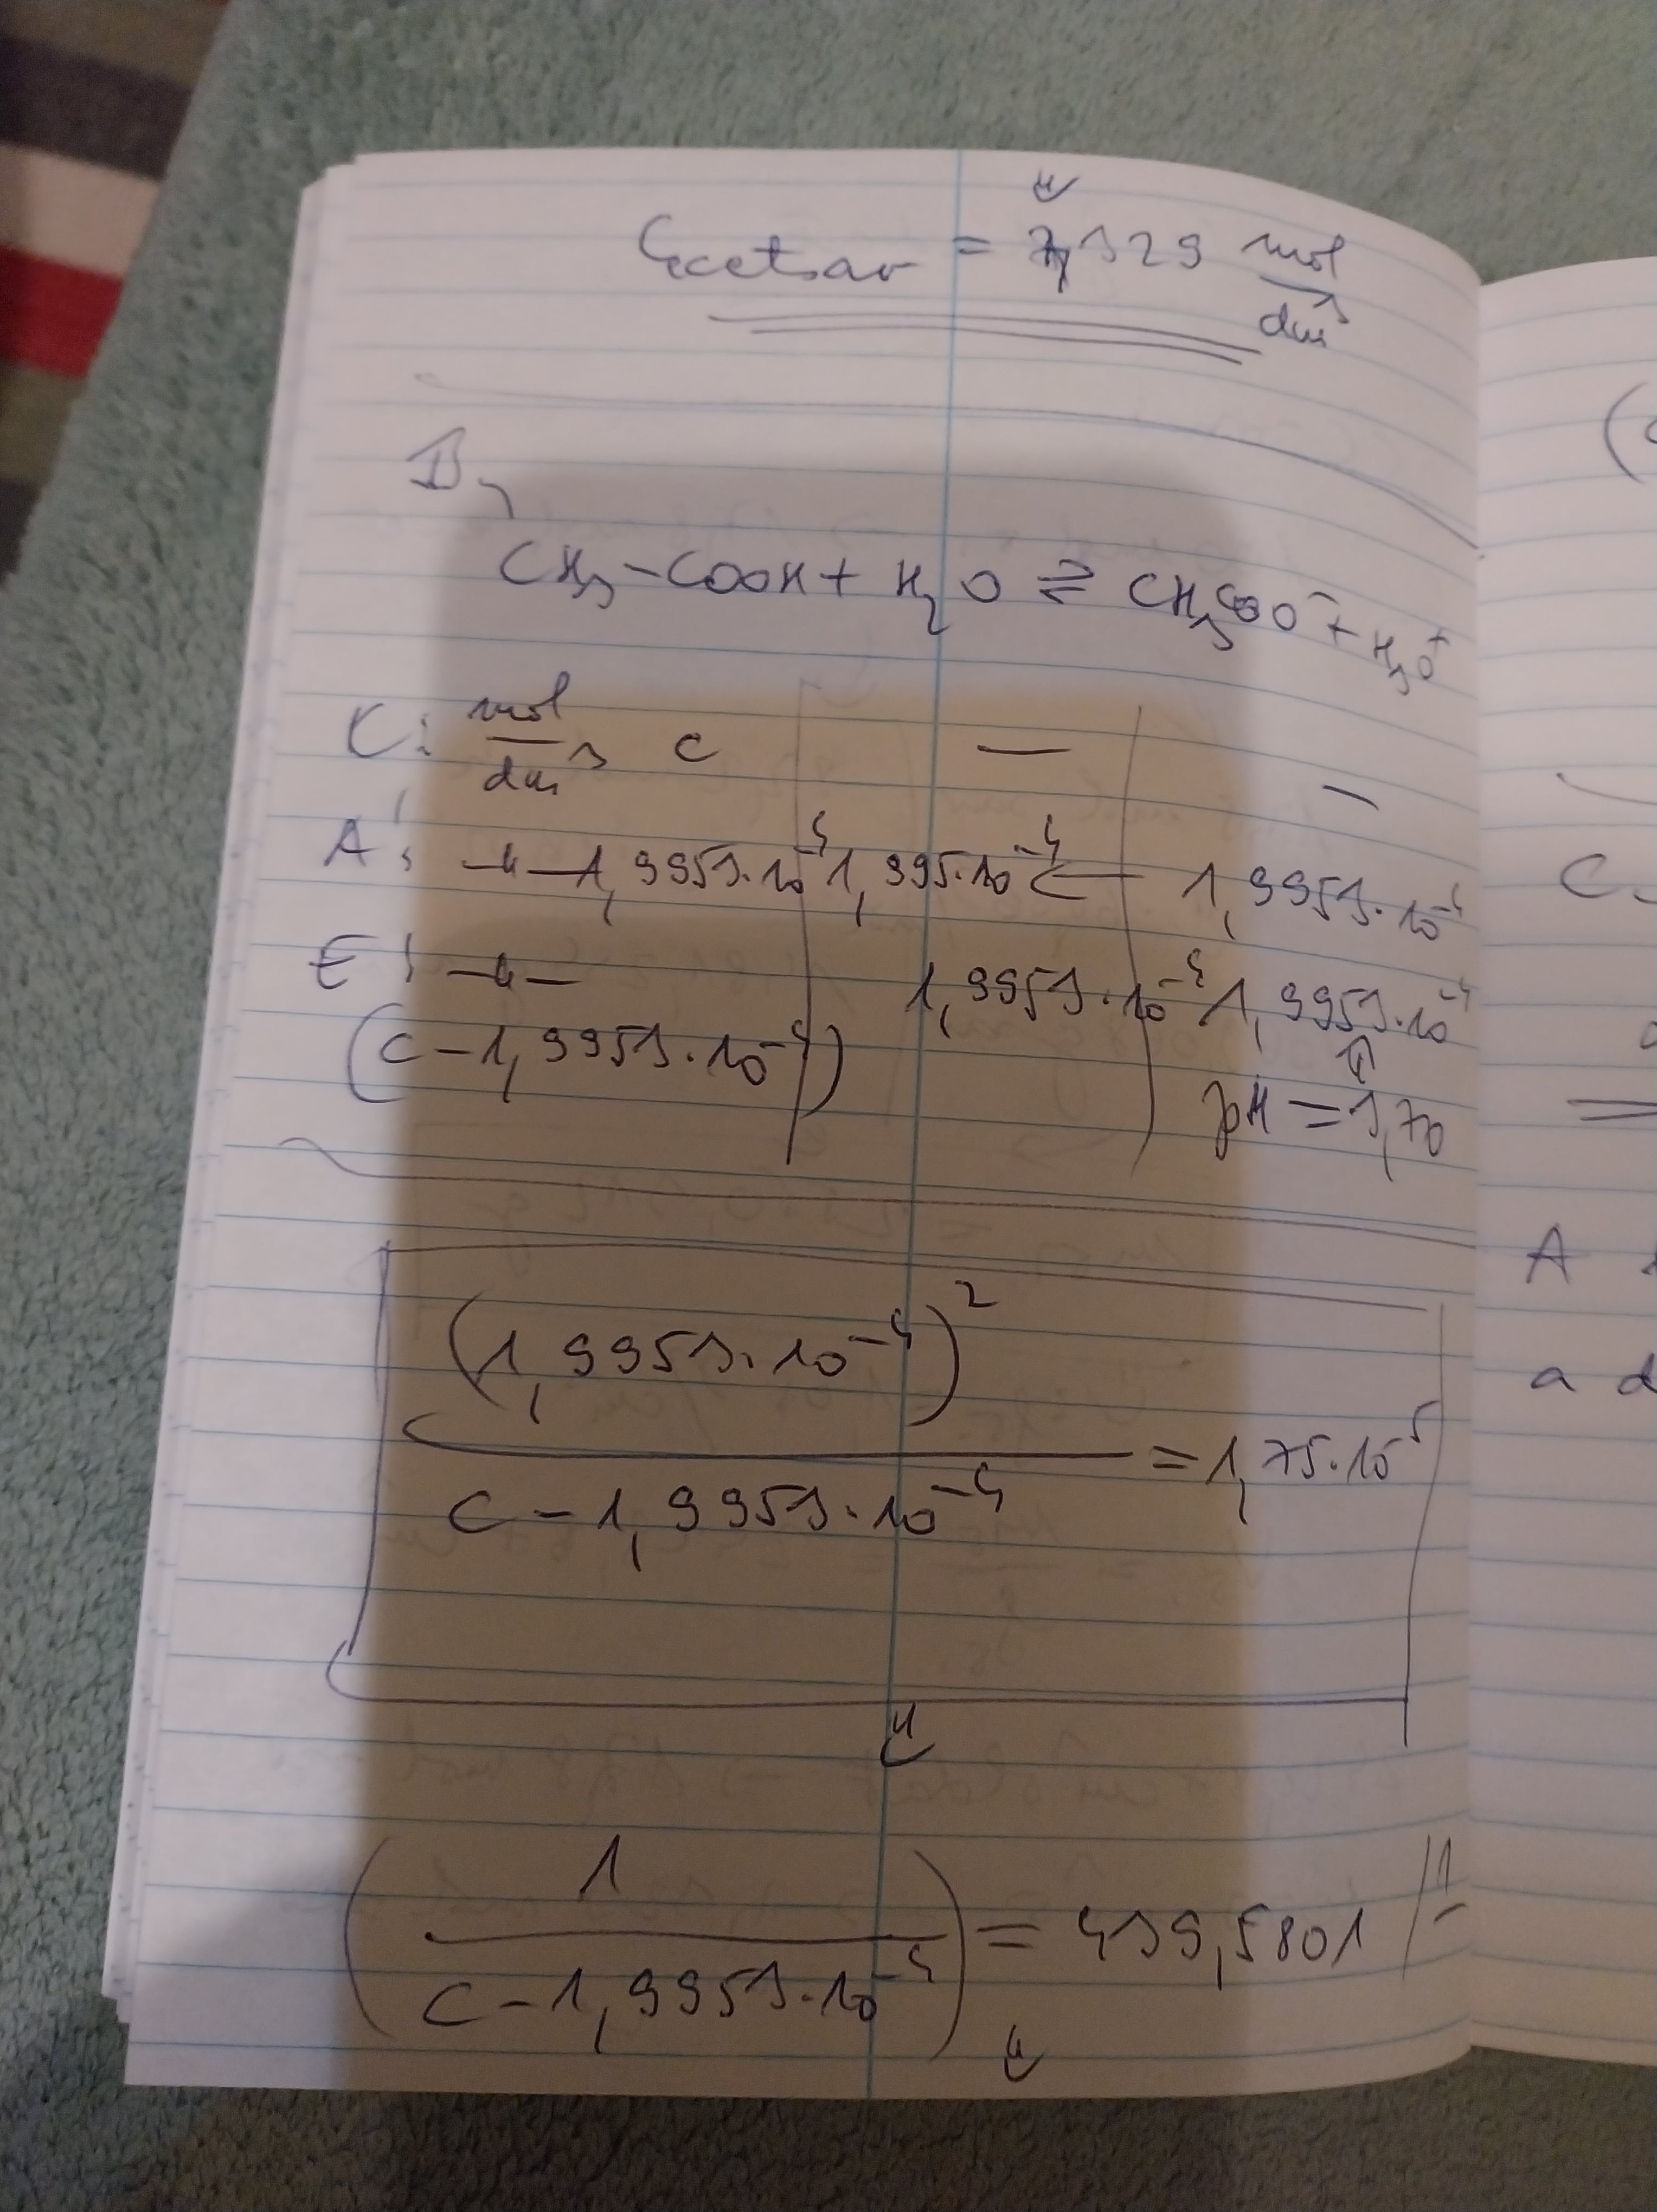 = 7,329 mol/dm³
B,
CH₃-COOH + H₂O ⇌ CH₃COO⁻ + H₃O⁺
K: mol/dm³ c — –
A: -"- -1,9953·10⁻⁴ 1,995·10⁻⁴ ← 1,9953·10⁻⁴
E: -"- 1,9953·10⁻⁴ 1,9953·10⁻⁴
(c-1,9953·10⁻⁴) ⇑
pH = 3,70
(1,9953·10⁻⁴)²
/ (c-1,9953·10⁻⁴) = 1,75·10⁻⁵
⇓
(1 / (c-1,9953·10⁻⁴)) = 439,5801 //
⇓
(
C
A
a d